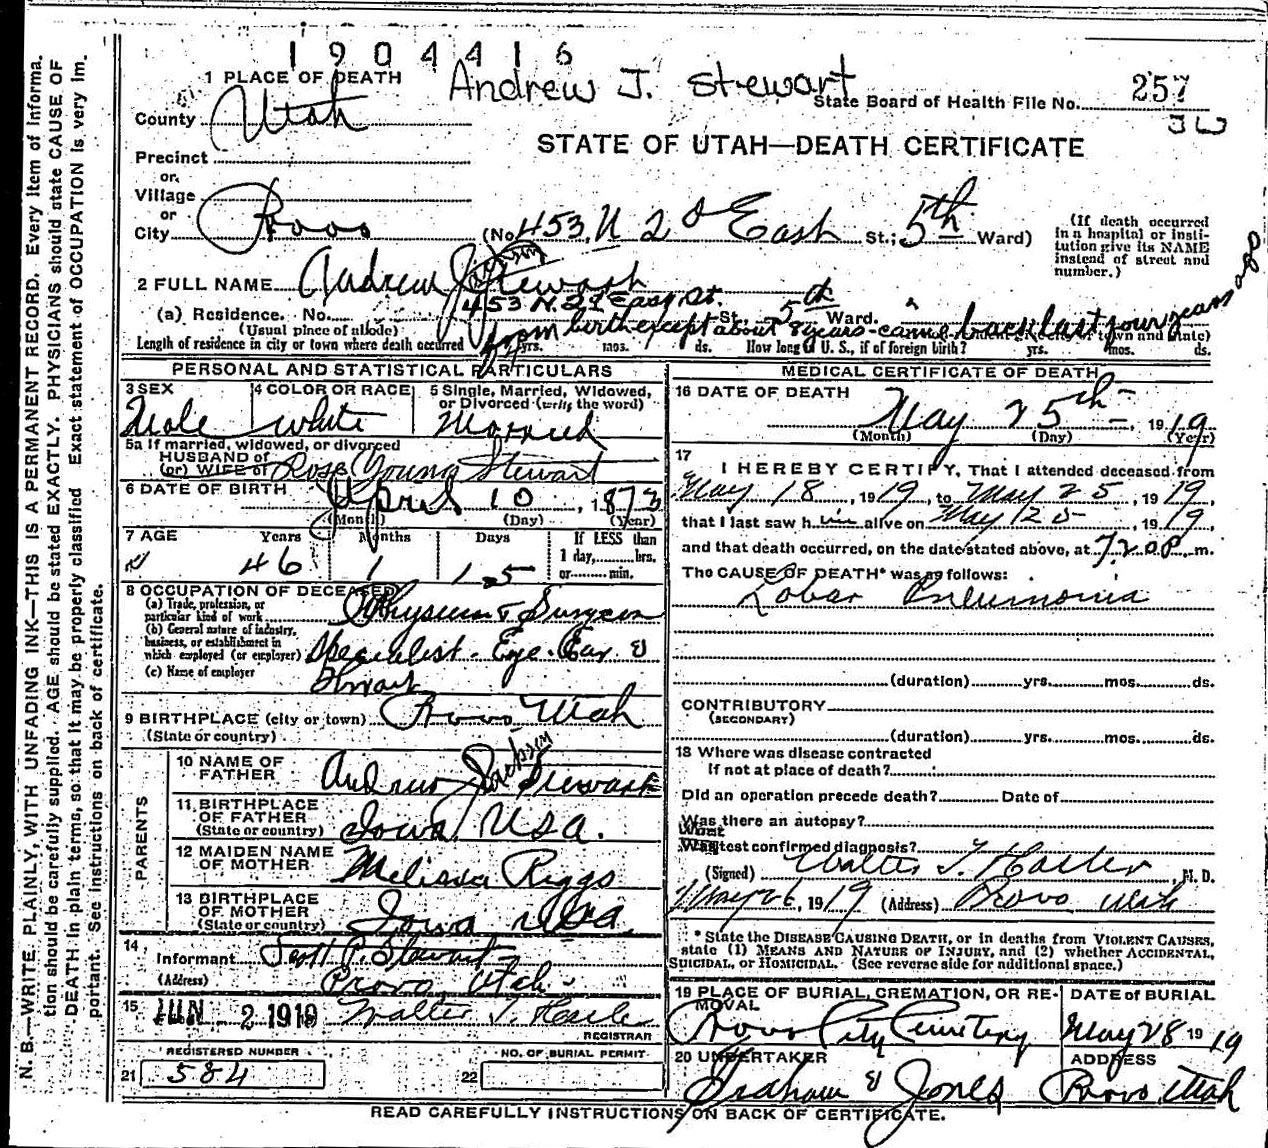 1904416
Andrew J. Stewart
1 PLACE OF DEATH
State Board of Health File No. 257
County Utah
STATE OF UTAH—DEATH CERTIFICATE
Precinct
or
Village
or
City Provo (No. 453 N 2d East St.; 5th Ward)
(If death occurred in a hospital or institution give its NAME instead of street and number.)
2 FULL NAME Andrew Jackson Stewart
(a) Residence. No. 453 N. 2d East St. St. 5th Ward.
(Usual place of abode)
from birth except about 8 years - came back last four years ago
Length of residence in city or town where death occurred yrs. mos. ds. How long in U. S., if of foreign birth? yrs. mos. ds.
PERSONAL AND STATISTICAL PARTICULARS
3 SEX Male
4 COLOR OR RACE white
5 Single, Married, Widowed, or Divorced (write the word) Married
5a If married, widowed, or divorced
HUSBAND of
(or) WIFE of Rose Young Stewart
6 DATE OF BIRTH April 10, 1873
(Month) (Day) (Year)
7 AGE Years Months Days If LESS than
46 1 15 1 day, hrs.
or min.
8 OCCUPATION OF DECEASED
(a) Trade, profession, or particular kind of work Physician & Surgeon
(b) General nature of industry, business, or establishment in which employed (or employer) Specialist - Eye - Ear &
(c) Name of employer Throat
9 BIRTHPLACE (city or town) Provo Utah
(State or country)
PARENTS
10 NAME OF FATHER Andrew Jackson Stewart
11 BIRTHPLACE OF FATHER (State or country) Iowa USA.
12 MAIDEN NAME OF MOTHER Melissa Riggs
13 BIRTHPLACE OF MOTHER (State or country) Iowa USA.
14 Informant Scott P. Stewart
(Address) Provo Utah
15 JUN 2 1919 Walter T. Hasler
REGISTRAR
REGISTERED NUMBER
21 584
NO. OF BURIAL PERMIT
22
MEDICAL CERTIFICATE OF DEATH
16 DATE OF DEATH
May 25th, 1919
(Month) (Day) (Year)
17
I HEREBY CERTIFY, That I attended deceased from
May 18, 1919, to May 25, 1919,
that I last saw him alive on May 25, 1919,
and that death occurred, on the date stated above, at 7.20 P m.
The CAUSE OF DEATH* was as follows:
Lobar Pneumonia
(duration) yrs. mos. ds.
CONTRIBUTORY
(SECONDARY)
(duration) yrs. mos. ds.
18 Where was disease contracted
If not at place of death?
Did an operation precede death? Date of
Was there an autopsy?
What test confirmed diagnosis?
(Signed) Walter T. Hasler, M. D.
May 26, 1919 (Address) Provo Utah
* State the DISEASE CAUSING DEATH, or in deaths from VIOLENT CAUSES, state (1) MEANS AND NATURE OF INJURY, and (2) whether ACCIDENTAL, SUICIDAL, or HOMICIDAL. (See reverse side for additional space.)
19 PLACE OF BURIAL, CREMATION, OR REMOVAL
Provo City Cemetery
DATE of BURIAL
May 28 1919
20 UNDERTAKER
Graham & Jones
ADDRESS
Provo, Utah
READ CAREFULLY INSTRUCTIONS ON BACK OF CERTIFICATE.
N. B.—WRITE PLAINLY, WITH UNFADING INK—THIS IS A PERMANENT RECORD. Every item of information should be carefully supplied. AGE should be stated EXACTLY. PHYSICIANS should state CAUSE OF DEATH in plain terms, so that it may be properly classified. Exact statement of OCCUPATION is very important. See instructions on back of certificate.